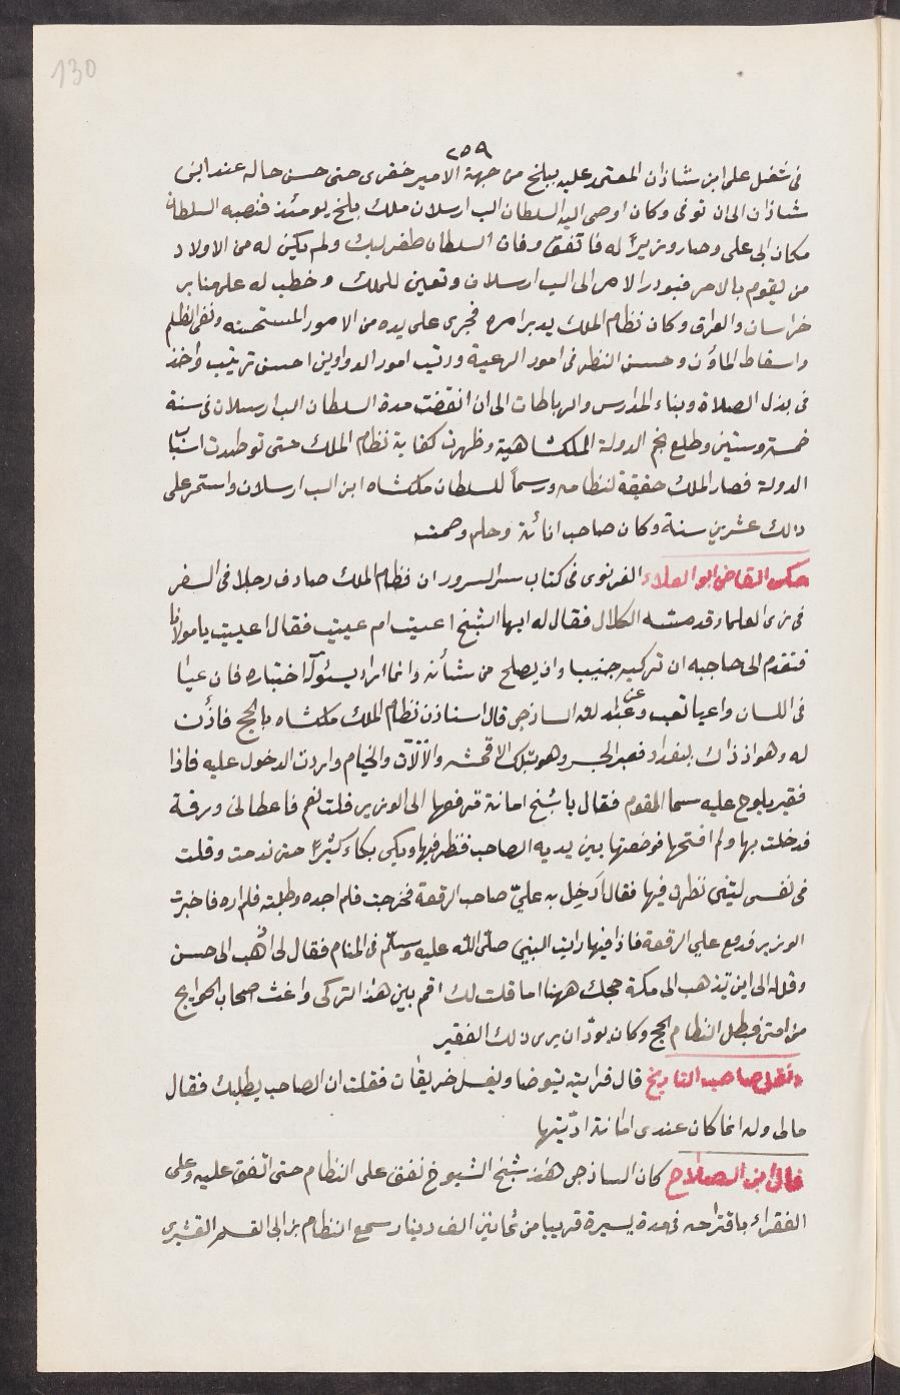 130
٢٥٩
فى شغل على ابن شاذان المعتمد عليه ببلخ من جهة الامير جغرى حتى حسن حاله عند ابن
شاذان الى ان توفى وكان اوصى اليه السلطان الب ارسلان ملك بلخ يومئذ فنصبه السلطان
مكان ابى على وصار وزيرًا له فاتفق وفات السلطان طغرلبك ولم يكن له من الاولاد
من يقوم بالامر فبودر الامر الى الب ارسلان وتعين للملك وخطب له على منابر
خراسان والعراق وكان نظام الملك يدبر امره فجرى على يده من الامور المستحسنه ونفى الظلم
واسقاط المأون وحسن النظر فى امور الرعية ورتب امور الدواوين احسن ترتيب واخذ
فى بذل الصلاة وبناء المدارس والرباطات الى ان انقضت مدة السلطان الب ارسلان فى سنة
خمسة وستين وطلع نجم الدولة الملكشاهية وظهرت كفاية نظام الملك حتى توطدت اسباب
الدولة فصار الملك حقيقة لنظامه ورسمًا للسلطان ملكشاه ابن الب ارسلان واستمر على
ذلك عشرين سنة وكان صاحب اناءة وحلم وصمت
حكى القاضى ابو العلاء الغزنوى فى كتاب سر السرور ان نظام الملك صادف رجلا فى السفر
فى زى العلماء قد مسه الكلال فقال له ايها الشيخ اعيت ام عييت فقال اعييت يا مولانا
فتقدم الى حاجبه ان تركبه جنيبا وان يصلح من شأنه وانما اراد بسئوله اختباره فان عيا
فى اللسان واعيا تعب وعن عبد الله الساوجى قال استاذن نظام الملك ملكشاه بالحج فاذن
له وهو اذ ذاك ببغداد فعبر الجسر وهو بتلك الاقمشه والآلات والخيام واردت الدخول عليه فاذا
فقير يلوح عليه سيما القوم فقال يا شيخ امانة ترفعها الى الوزير قلت نعم فاعطانى ورقة
فدخلت بها ولم افتحها فوضعتها بين يديه الصاحب فنظر فيها وبكى بكاء كثيرًا حتى ندمت وقلت
فى نفسى ليتنى نظرت فيها فقال ادخل به علىّ صاحب الرقعة فخرجت فلم اجده وطلبته فلم اره فاخبرت
الوزير فدفع علي الرقعة فاذا فيها رايت النبي صلّى الله عليه وسلّم فى المنام فقال لى اذهب الى حسن
وقل له الى اين تذهب الى مكة حجك ههنا اما قلت لك اقم بين هذا التركى واغث اصحاب الحوايج
من امتى فبطل النظام الحج وكان يودّ ان يرى ذلك الفقير
ونقل صاحب التاريخ قال فرايته يتوضا ويغسل خريقات فقلت ان الصاحب يطلبك فقال
مالى وله انما كان عندى امانة ادّيتها
قال ابن الصلاح كان الساوجى هذا شيخ الشيوخ نفق على النظام حتى انفق عليه وعلى
الفقراء باقتراحه فى مدة يسيرة قريبا من ثمانين الف دينار سمع النظام من ابى القسم القشيرى